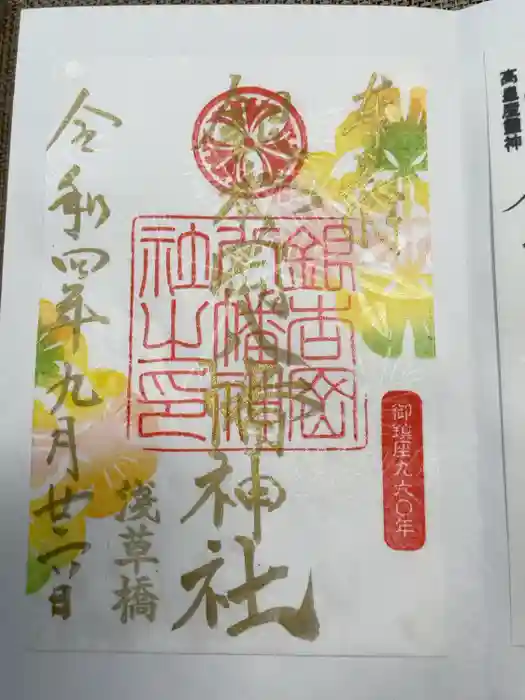 高皇産靈神
奉拝
御鎮座九六〇年
銀杏岡八幡神社
銀杏岡
八幡神
社之印
浅草橋
令和四年九月廿六日